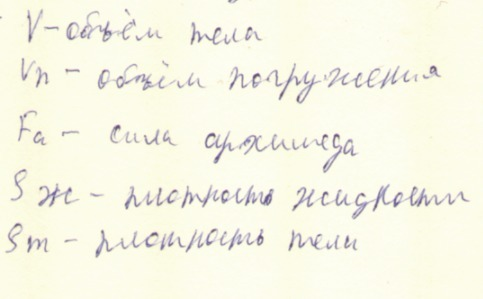 V - объём тела
Vп - объём погружения
Fа - сила архимеда
ρж - плотность жидкости
ρт - плотность тела